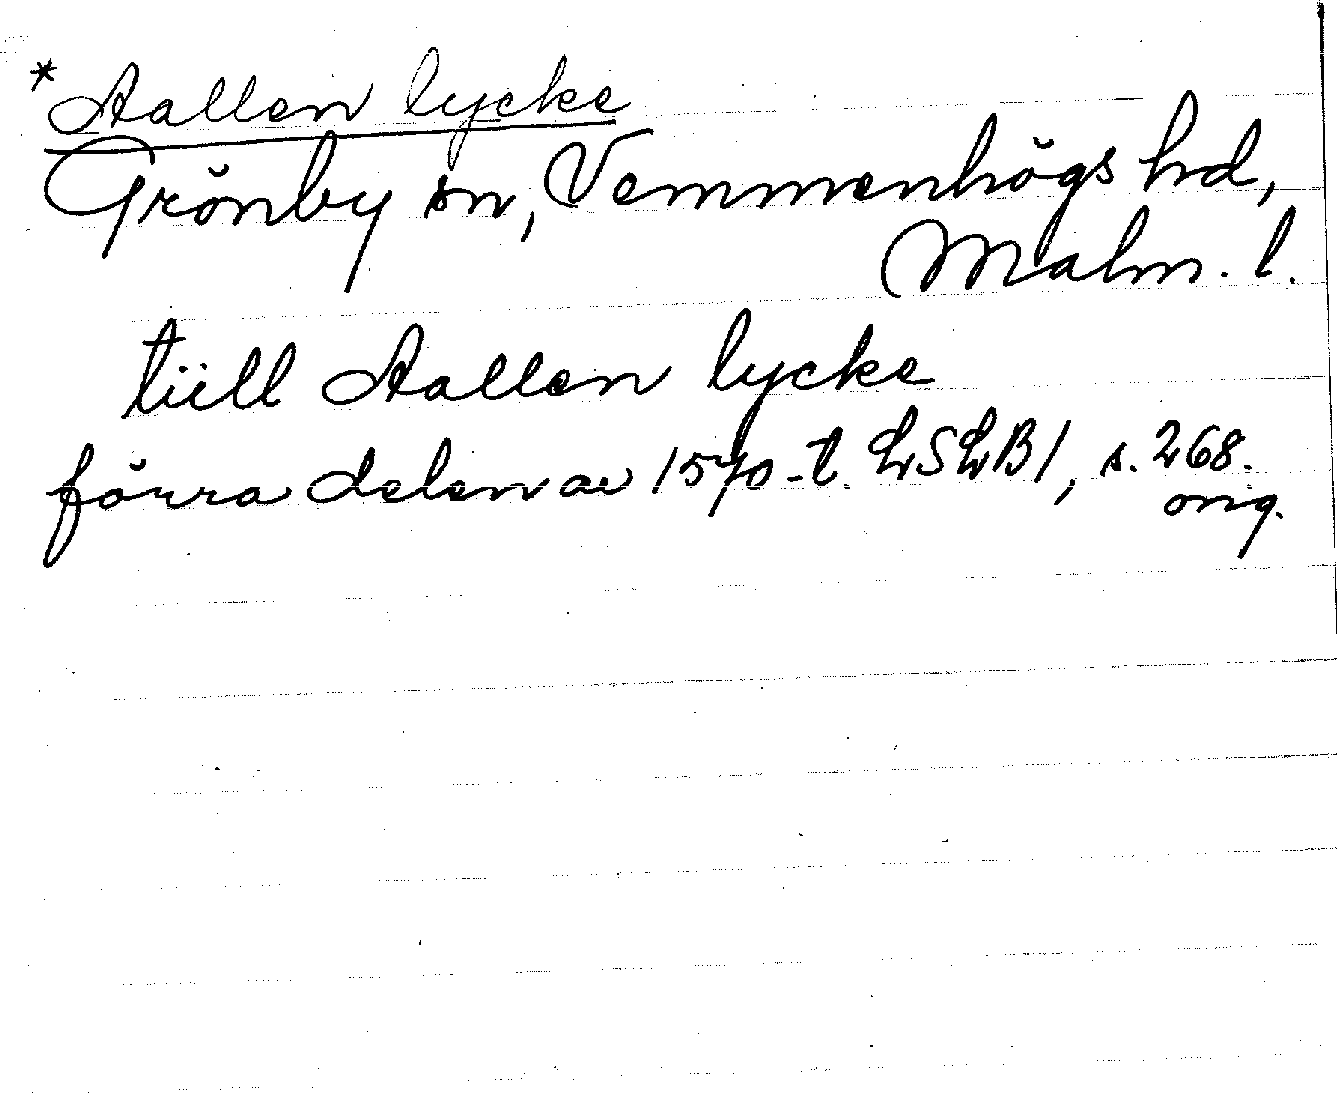 *Aallen lycke
Grönby sn, Vemmenhögs hd,
Malm. l.
tiill Aallen lycke
förra delen av 1570-t. LSLB1, s. 268.
orig.